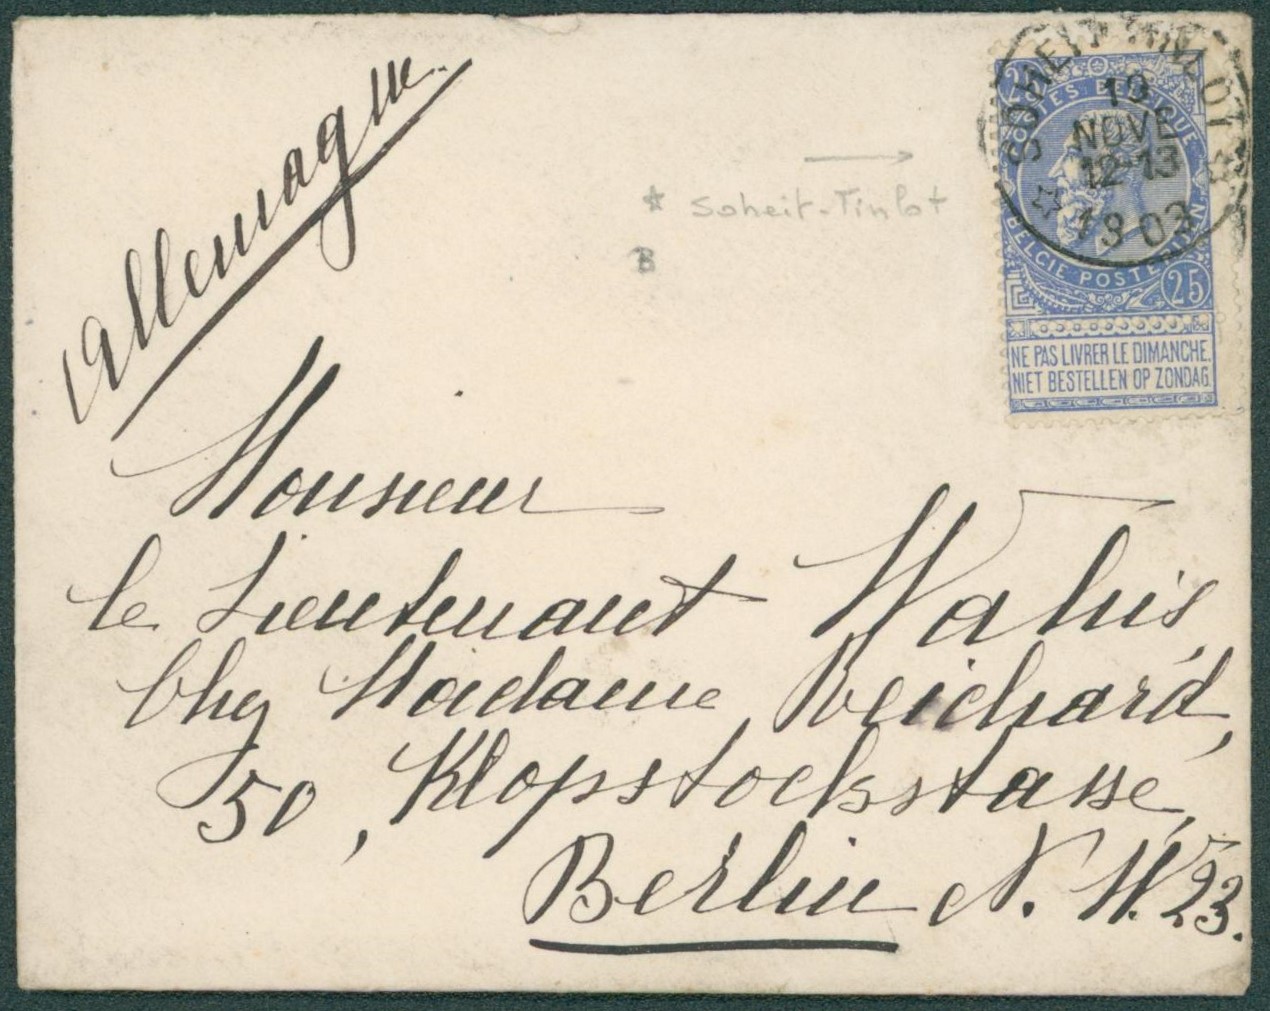 Allemagne.
SOHEIT-TINLOT
19
NOVE
12-13
1903
25
POSTES BELGIQUE
BELGIE POSTERIJEN
25
NE PAS LIVRER LE DIMANCHE.
NIET BESTELLEN OP ZONDAG.
* Soheit-Tinlot
B
Monsieur
le Lieutenant Wahis,
Chez Madame Reichard,
50, Klopstockstasse,
Berlin N. W. 23.